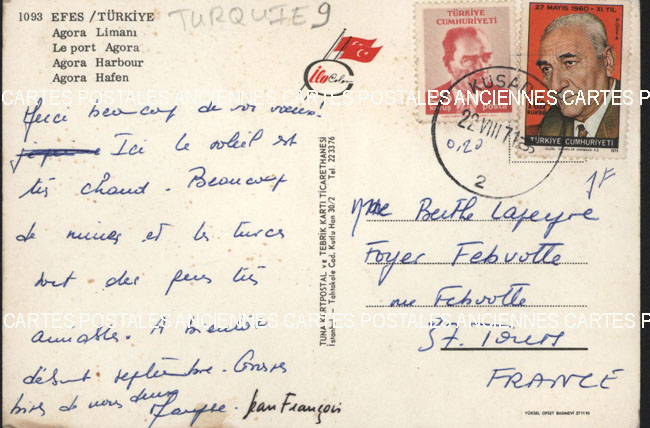 1093 EFES / TÜRKİYE
TURQUIE 9
Agora Limanı
Le port Agora
Agora Harbour
Agora Hafen
Merci beaucoup de vos vœux.
Ici le soleil est
très chaud. Beaucoup
de ruines et les turcs
sont des gens très
aimables. A bientôt
début septembre. Grosses
bises de nous deux
Jean François
TUNA KARTPOSTAL ve TEBRİK KARTI TİCARETHANESİ
İstanbul - Tahtakale Cad. Kutlu Han 30/2 Tel. 223376
TÜRKİYE
CUMHURİYETİ
posta
27 MAYIS 1960 - XI. YIL
TÜRKİYE CUMHURİYETİ
KUŞADA
22 VIII 71
2
1F
Mme Berthe Lapeyre
Foyer Febvotte
rue Febvotte
37. Tours
FRANCE
YÜKSEL OFSET BASIMEVİ 271195
CARTES POSTALES ANCIENNES CARTES POSTALES ANCIENNES
CARTES POSTALES ANCIENNES CARTES POSTALES ANCIENNES